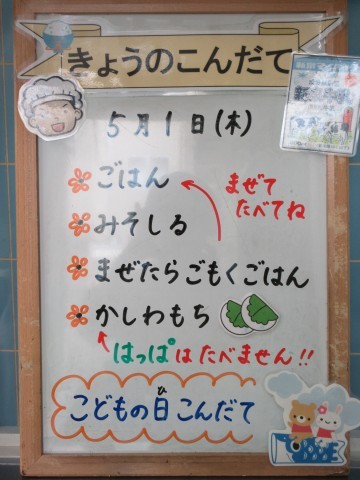 きょうのこんだて
5月1日(木)
ごはん
まぜて
たべてね
みそしる
まぜたらごもくごはん
かしわもち
はっぱはたべません!!
こどもの日こんだて
ひ